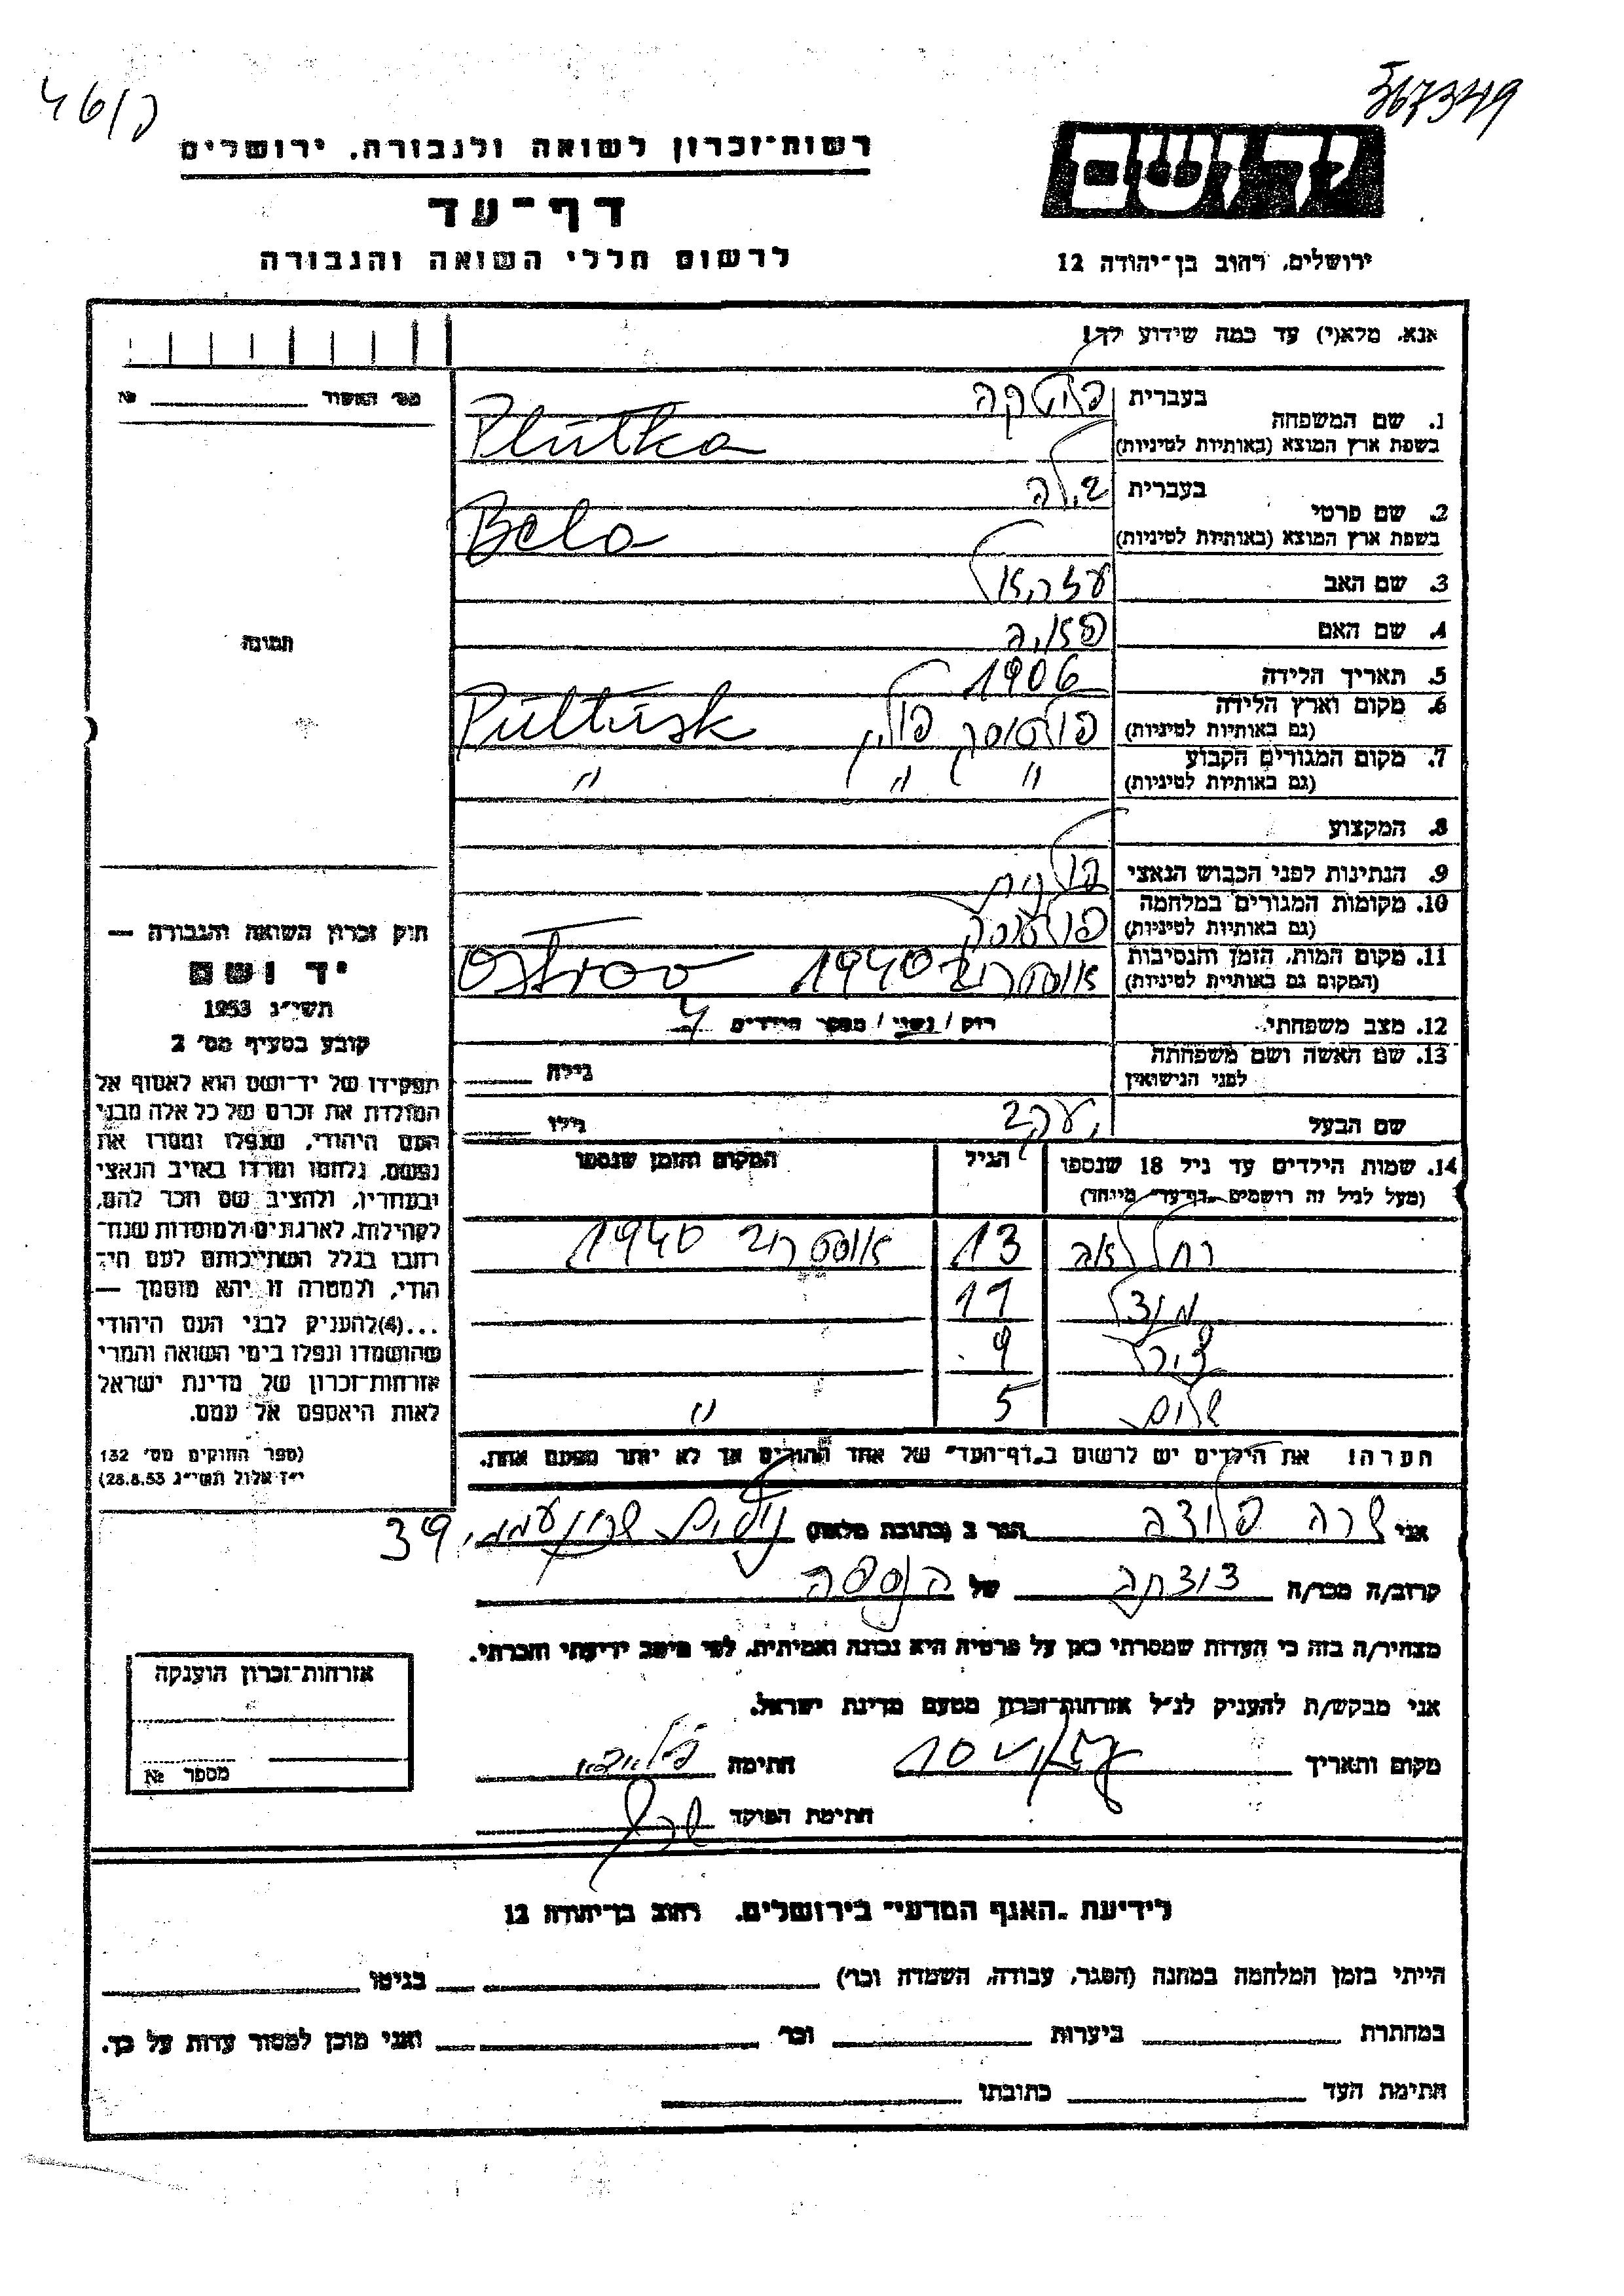 567349
46/ק
רשות-זכרון לשואה ולגבורה, ירושלים
דף-עד
לרשום חללי השואה והגבורה
יד ושם
ירושלים, רחוב בן-יהודה 12
אנא, מלא(י) עד כמה שידוע לך!
מס' האשור № 
1. שם המשפחה
בעברית פלוטקה
בשפת ארץ המוצא (באותיות לטיניות) Plutka
2. שם פרטי
בעברית בילה
בשפת ארץ המוצא (באותיות לטיניות) Bela
3. שם האב עזריאל
4. שם האם
5. תאריך הלידה 1906
6. מקום וארץ הלידה
(גם באותיות לטיניות) פולטוסק פולין Pultusk
7. מקום המגורים הקבוע
(גם באותיות לטיניות) " " "
8. המקצוע
9. הנתינות לפני הכבוש הנאצי פולנית
10. מקומות המגורים במלחמה
(גם באותיות לטיניות) פולטוסק
11. מקום המות, הזמן והנסיבות
(המקום גם באותיות לטיניות) אוסטרוב 1940 Ostrov
12. מצב משפחתי רוק / נשוי / מספר הילדים 4
13. שם האשה ושם משפחתה
לפני הנישואין גילה
שם הבעל יעקב גילו
14. שמות הילדים עד גיל 18 שנספו
(מעל לגיל זה רושמים "דף-עד" מיוחד)
הגיל
המקום והזמן שנספו
רחל לאה 13 אוסטרוב 1940
11
9
שלום 5 "
הערה! את הילדים יש לרשום ב"דף-העד" של אחד ההורים אך לא יותר מפעם אחת.
תמונה
חוק זכרון השואה והגבורה —
יד ושם
תשי"ג 1953
קובע בסעיף מס' 2
תפקידו של יד-ושם הוא לאסוף אל
המולדת את זכרם של כל אלה מבני
העם היהודי, שנפלו ומסרו את
נפשם, נלחמו ומרדו באויב הנאצי
ובעוזריו, ולהציב שם וזכר להם,
לקהילות, לארגונים ולמוסדות שנח-
רבו בגלל השתייכותם לעם הי-
הודי, ולמטרה זו יהא מוסמך —
...(4)להעניק לבני העם היהודי
שהושמדו ונפלו בימי השואה והמרי
אזרחות-זכרון של מדינת ישראל
לאות היאספם אל עמם.
(ספר החוקים מס' 132
י"ז אלול תשי"ג 28.8.53)
אני שרה הגר ב (כתובת מלאה) 39
קרוב/ה מכר/ה של הנספה
מצהיר/ה בזה כי העדות שמסרתי כאן על פרטיה היא נכונה ואמיתית, לפי מיטב ידיעתי והכרתי.
אני מבקש/ת להעניק לנ"ל אזרחות-זכרון מטעם מדינת ישראל.
מקום ותאריך חתימה
חתימת הפוקד
אזרחות-זכרון הוענקה
מספר №
לידיעת "האגף המדעי" בירושלים, רחוב בן-יהודה 12
הייתי בזמן המלחמה במחנה (הסגר, עבודה, השמדה וכו') בגיטו
במחתרת ביערות וכו' ואני מוכן למסור עדות על כך.
חתימת העד כתובתו